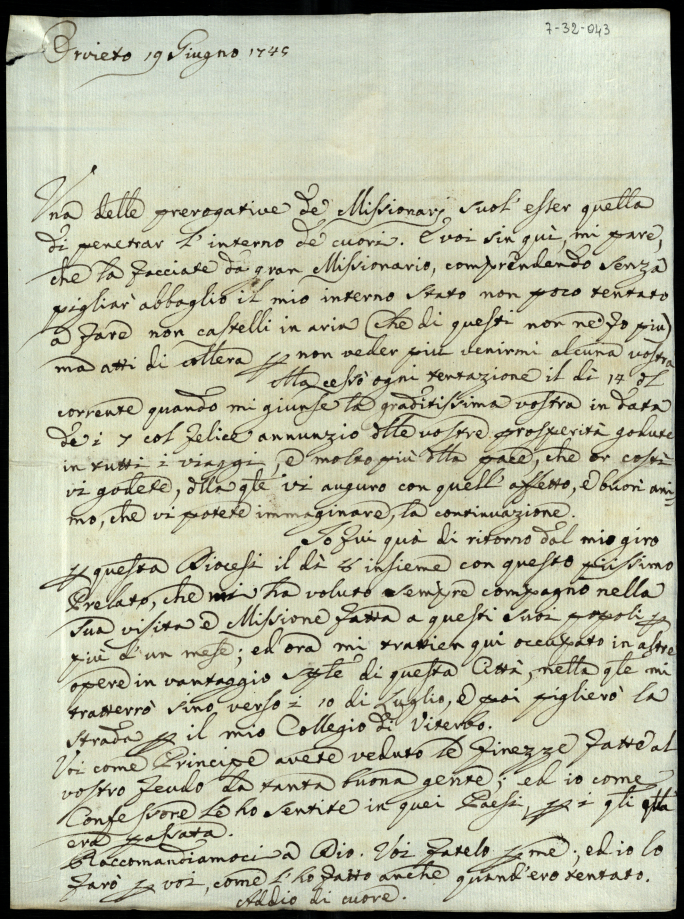 7-32-043
Orvieto 19 Giugno 1745
Una delle prerogative de' Missionarj suol' esser quella
di penetrar l'interno de' cuori. E voi sin quì, mi pare,
che la facciate da gran Missionario, comprendendo senza
pigliar abbaglio il mio interno stato non poco tentato
a fare non castelli in aria (che di questi non ne fo più)
ma atti di collera p non veder più venirmi alcuna vostra
Ma cessò ogni tentazione il dì 14 del
corrente quando mi giunse la graditissima vostra in data
de i 7 col felice annunzio dlle vostre prosperità godute
in tutti i viaggi, e molto più dlla pace, che or costì
vi godete, dlla qle vi auguro con quell' affetto, e buon ani=
mo, che vi potete immaginare, la continuazione.
Io fui quà di ritorno dal mio giro
p questa Diocesi il dì 8 insieme con questo piissimo
Prelato, che mi ha voluto sempre compagno nella
sua visita e Missione fatta a questi suoi popoli p
più d'un mese; ed ora mi trattien qui occupato in altre
opere in vantaggio sple di questa Città, nella qle mi
tratterrò sino verso i 10 di Luglio, e poi piglierò la
strada p il mio Collegio di Viterbo.
Voi come Principe avete veduto le finezze fatte al
vostro feudo da tanta buona gente; ed io come
Confessore le ho sentite in quei Paesi, p i qli qlla
era passata.
Raccomandiamoci a Dio. Voi fatelo p me; ed io lo
farò p voi, come l'ho fatto anche quand'ero tentato.
Addio di cuore.